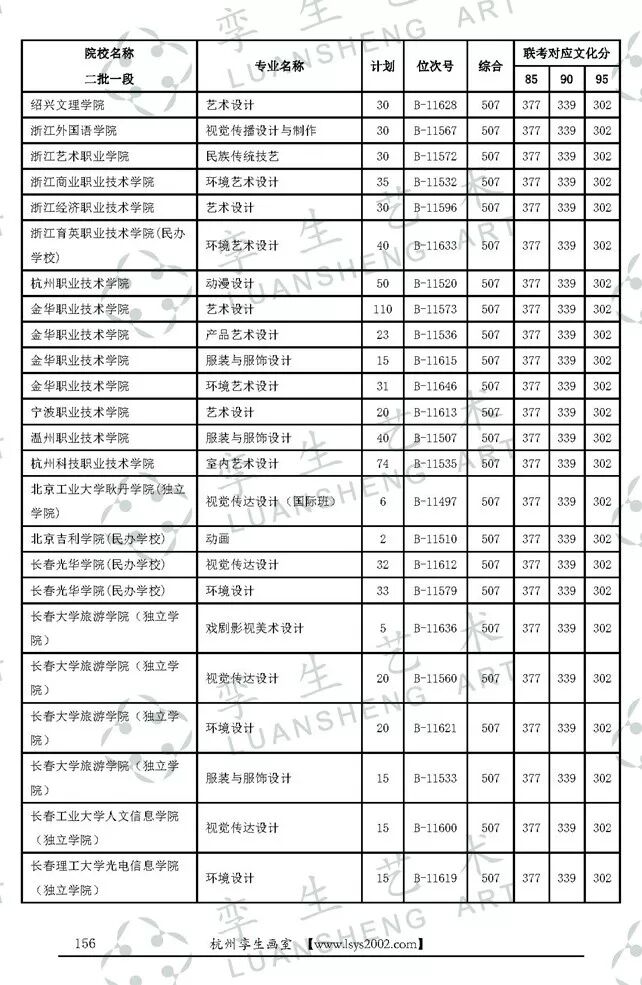 院校名称 专业名称 计划 位次号 综合 联考对应文化分
二批一段 85 90 95
绍兴文理学院 艺术设计 30 B-11628 507 377 339 302
浙江外国语学院 视觉传播设计与制作 30 B-11567 507 377 339 302
浙江艺术职业学院 民族传统技艺 30 B-11572 507 377 339 302
浙江商业职业技术学院 环境艺术设计 35 B-11532 507 377 339 302
浙江经济职业技术学院 艺术设计 30 B-11596 507 377 339 302
浙江育英职业技术学院(民办
学校) 环境艺术设计 40 B-11633 507 377 339 302
杭州职业技术学院 动漫设计 50 B-11520 507 377 339 302
金华职业技术学院 艺术设计 110 B-11573 507 377 339 302
金华职业技术学院 产品艺术设计 23 B-11536 507 377 339 302
金华职业技术学院 服装与服饰设计 15 B-11615 507 377 339 302
金华职业技术学院 环境艺术设计 31 B-11646 507 377 339 302
宁波职业技术学院 艺术设计 20 B-11613 507 377 339 302
温州职业技术学院 服装与服饰设计 40 B-11507 507 377 339 302
杭州科技职业技术学院 室内艺术设计 74 B-11535 507 377 339 302
北京工业大学耿丹学院(独立
学院) 视觉传达设计（国际班） 6 B-11497 507 377 339 302
北京吉利学院(民办学校) 动画 2 B-11510 507 377 339 302
长春光华学院(民办学校) 视觉传达设计 32 B-11612 507 377 339 302
长春光华学院(民办学校) 环境设计 33 B-11579 507 377 339 302
长春大学旅游学院（独立学
院） 戏剧影视美术设计 5 B-11636 507 377 339 302
长春大学旅游学院（独立学
院） 视觉传达设计 20 B-11560 507 377 339 302
长春大学旅游学院（独立学
院） 环境设计 20 B-11621 507 377 339 302
长春大学旅游学院（独立学
院） 服装与服饰设计 15 B-11533 507 377 339 302
长春工业大学人文信息学院
（独立学院） 视觉传达设计 15 B-11600 507 377 339 302
长春理工大学光电信息学院
（独立学院） 环境设计 15 B-11619 507 377 339 302
156 杭州孪生画室 【www.lsys2002.com】
孪生艺术
LUANSHENG ART